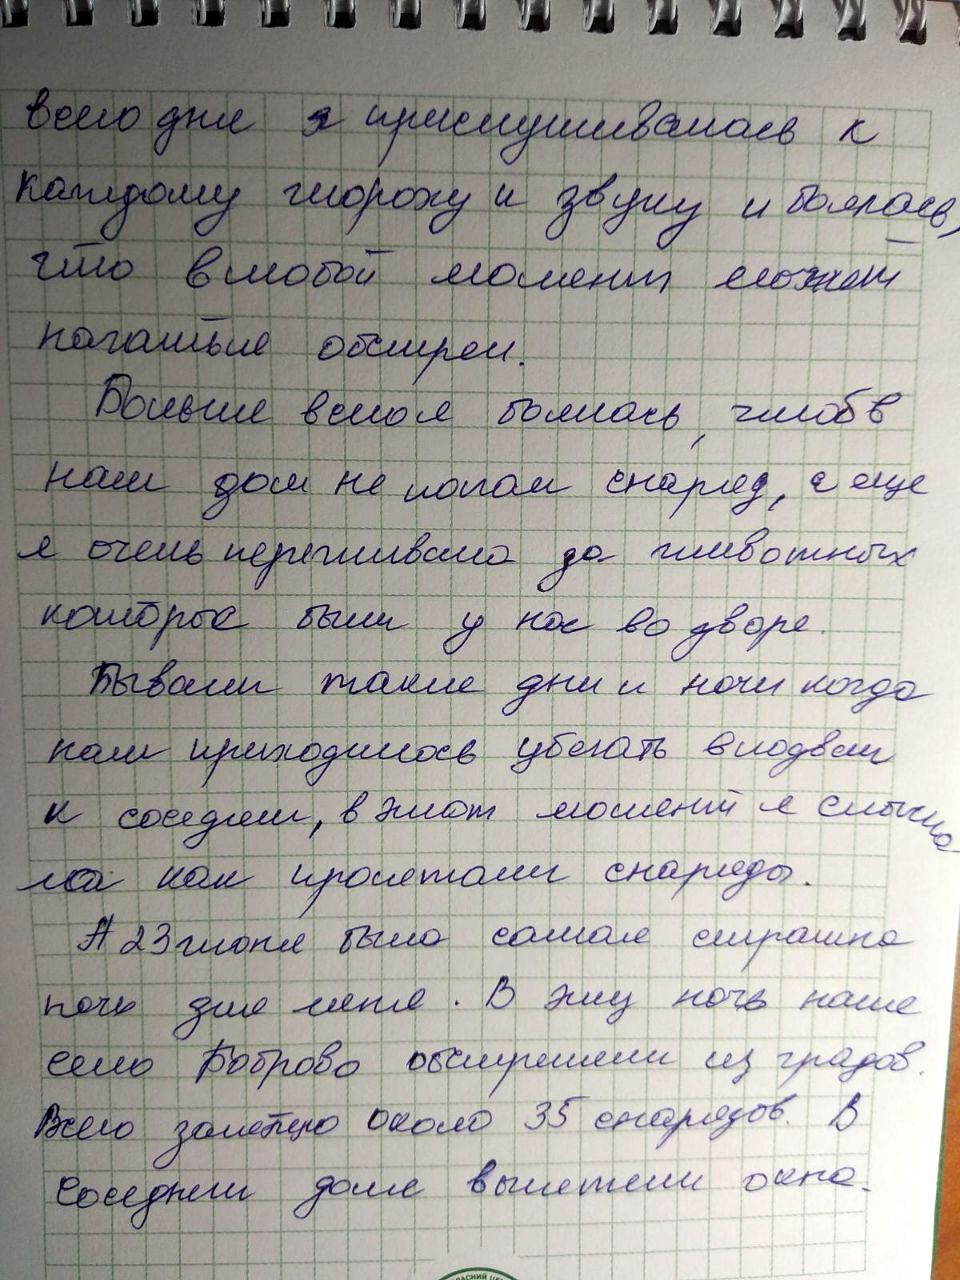 всего дня я прислушивалась к
каждому шороху и звуку и боялась,
что в любой момент может
начаться обстрел.
Больше всего я боялась, чтоб в
наш дом не попал снаряд, а еще
я очень переживала за животных
которые были у нас во дворе.
Бывали такие дни и ночи когда
нам приходилось убегать в подвал
к соседям, в этот момент я слыша
ла как пролетали снаряды.
А 23 июня была самая страшна
ночь для меня. В эту ночь наше
село Боброво обстреляли из градов.
Всего залетело около 35 снарядов. В
соседнем доме вылетели окна.